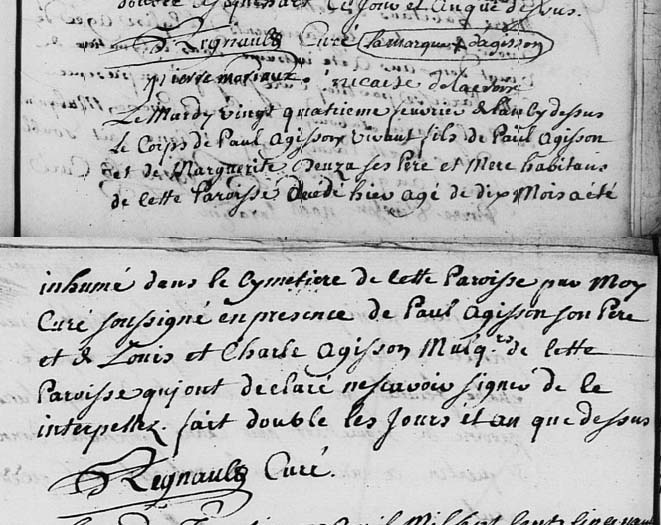 double les jour et an que dessus.
S. Regnault Curé la marque + dagisson
pierre moriaux. nicaise delacroix
Le Mardy vingt quatrieme fevrie & l'an cy dessus
Le Corps de Paul Agisson vivant fils de Paul Agisson
et de Marguerite Deuza ses Pere et Mere habitans
de Cette Paroisse decédé hier agé de dix Mois a été
inhumé dans le Cymetiere de Cette Paroisse par Moy
Curé soussigné en presence de Paul Agisson son Pere
et de Louis et Charle Agisson Musq.rs de Cette
Paroisse qui ont declaré nescavoir signer de ce
interpellez. fait double les Jours et an que dessus
S. Regnault Curé.